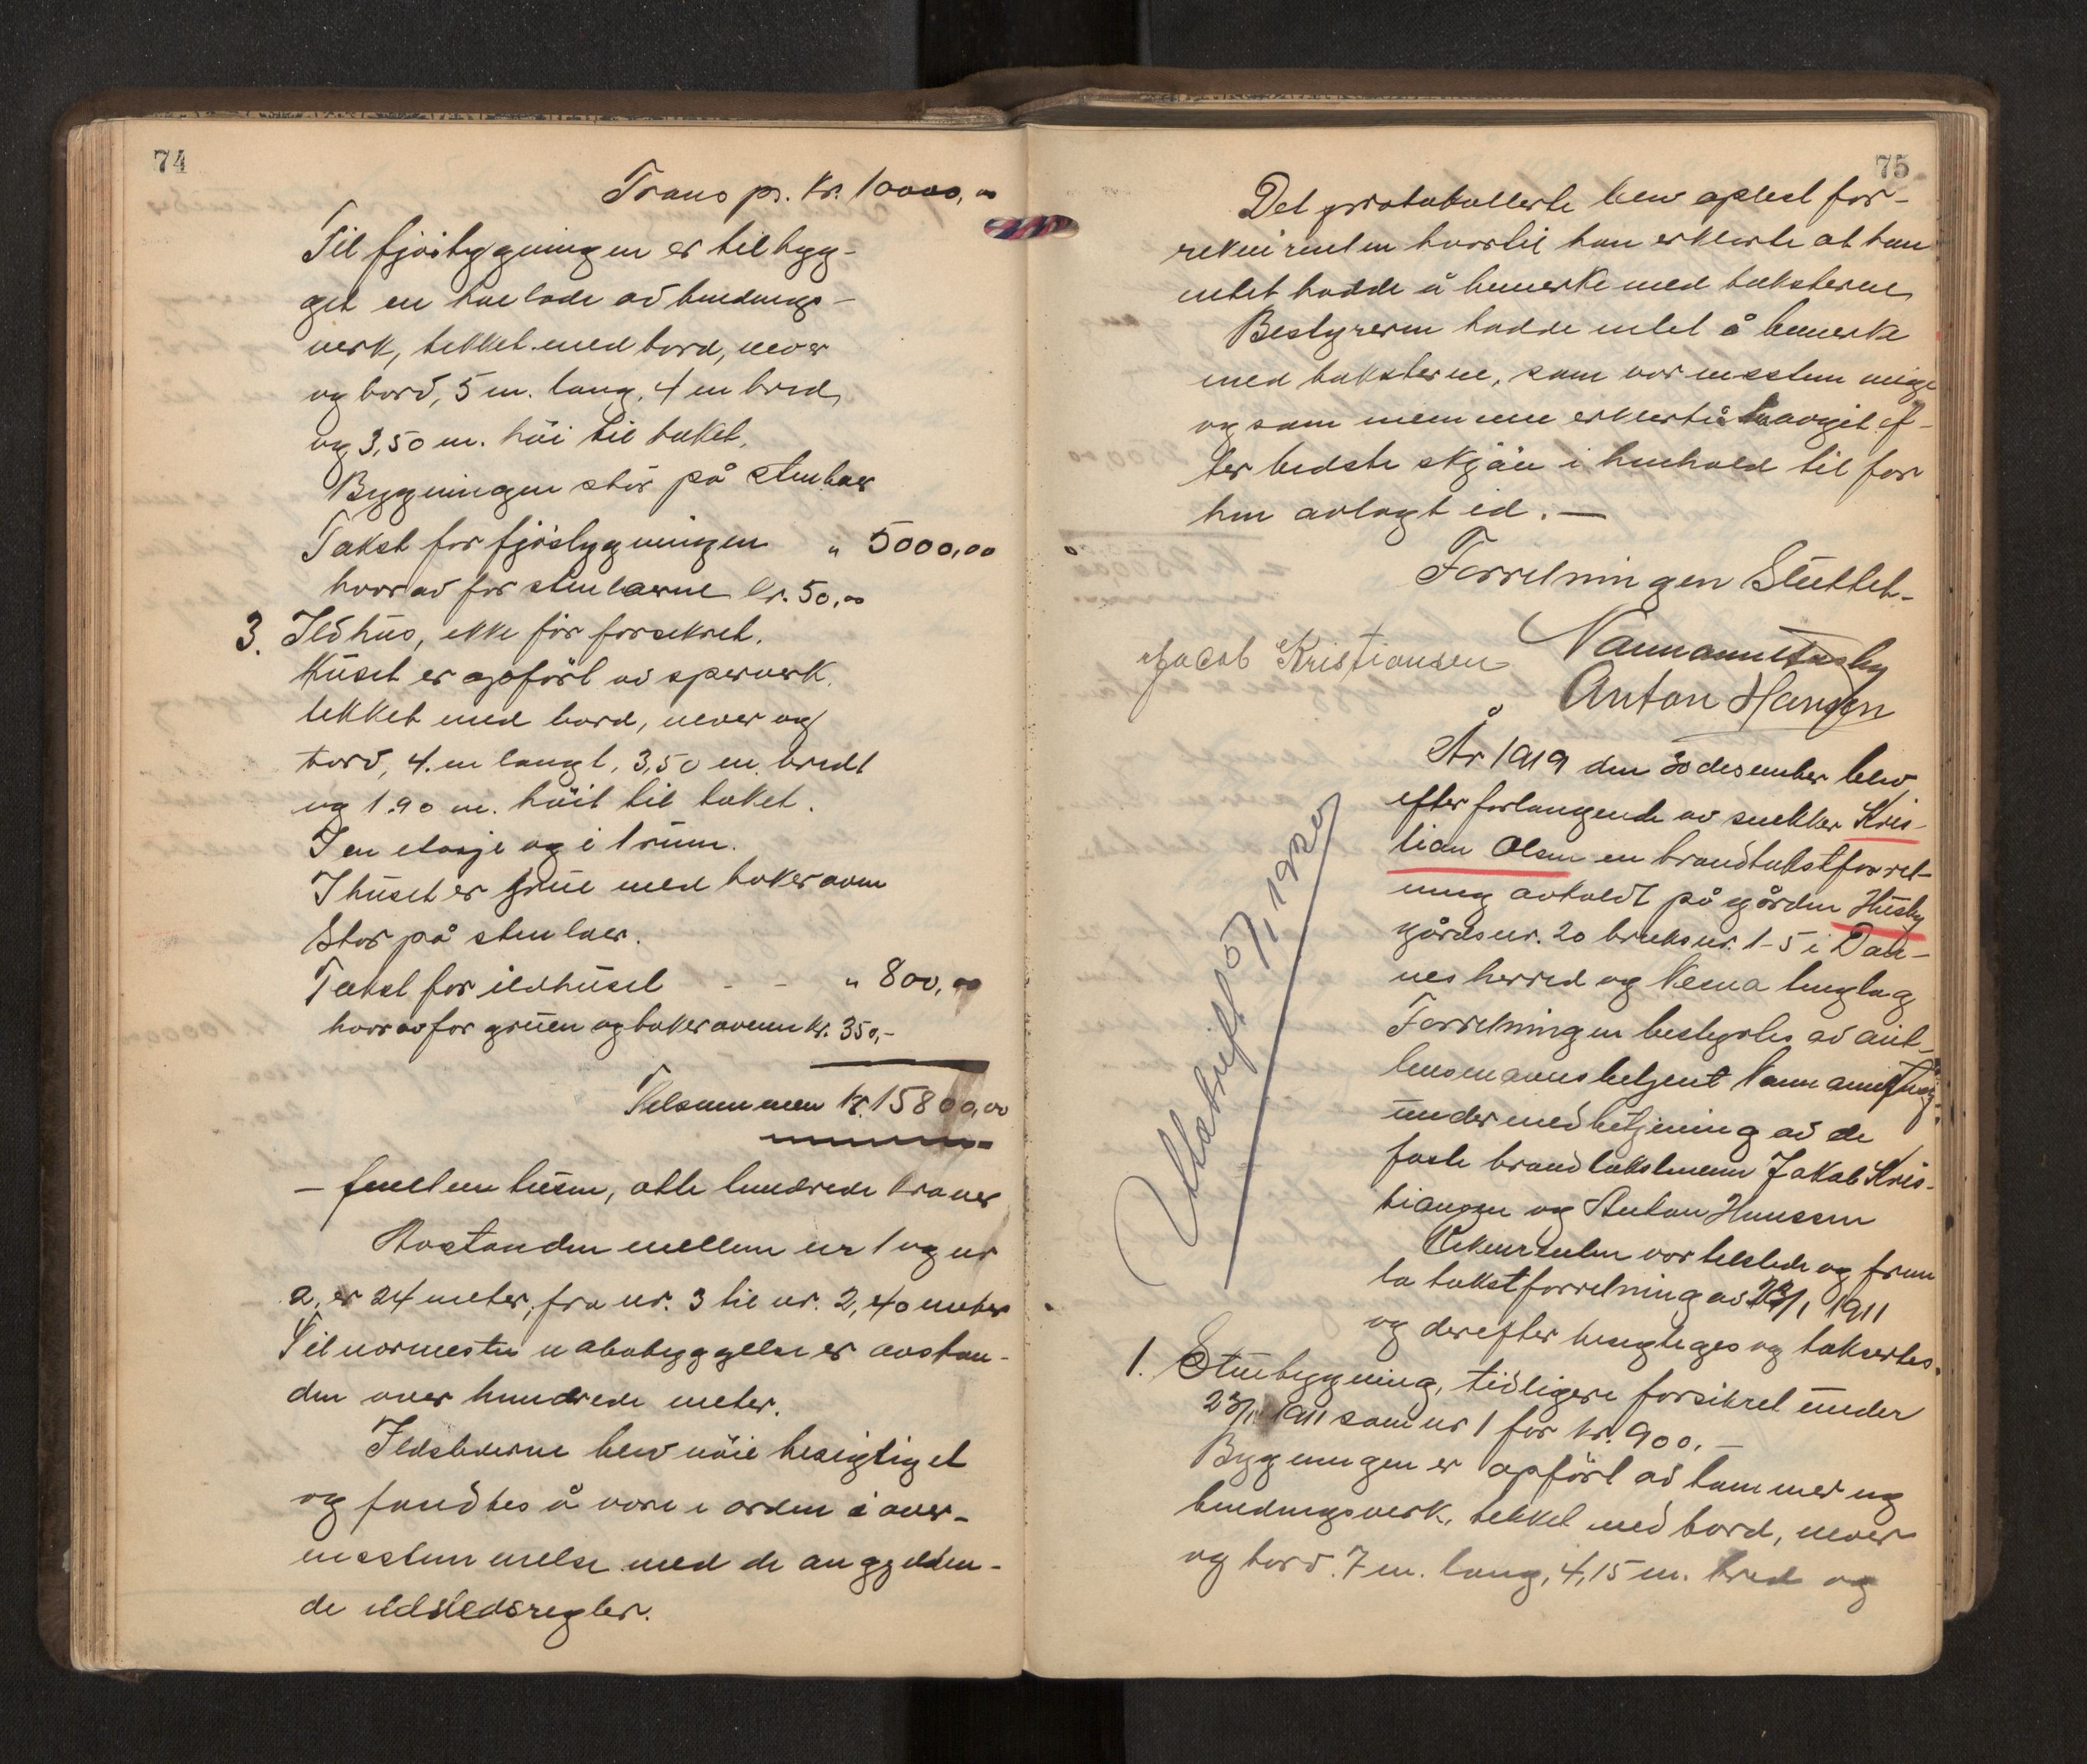 74
Transp. kr. 10000,00
Til fjösbygningen er tilbyg-
get en høelade av bindings-
verk, tekket med bord, never
og torv, 5 m. lang, 4 m bred,
og 3,50 m. höi til taket.
Bygningen stör på stenkar
Takst for fjösbygningen " 5000,00
hvorav for stenkarene kr. 50,00
3. Ildhus, ikke för forsikret.
Huset er opfört av sperverk,
tekket med bord, never og
torv, 4. m langt, 3,50 m. bredt
og 1.90 m. höit til taket.
I en etasje og i 1 rum.
I huset er grue med bakerovn
Stor på stenkar.
Takst for ildhuset - - " 800,00
hvorav for gruen og bakerovnen kr. 350,-
Tilsammen kr. 15800,00
- femten tusen, otte hundrede kroner
Avstanden mellem nr 1 og nr
2, er 24 meter, fra nr. 3 til nr. 2, 40 meter
Til nærmeste nabobyggelse er avstan-
den over hundrede meter.
Ildstederne blev nöie besigtiget
og fandtes å være i orden i over-
ensstemmelse med de angjelden-
de ildstedsregler.
75
Det protokollerte blev oplest for
rekvirenten hvortil han erklerte at han
intet hadde å bemerke med taksterne
Bestyreren hadde intet å bemerke
med taksterne, som var enstemmige
og som mennene erklerte å ha avgit ef-
ter bedste skjön i henhold til for
hen avlagt ed. —
Forretningen Sluttet-
Jacob Kristiansen Normann Husby
Anton Hansen
År 1919 den 30 desember blev
efter forlangende av snekker Kris-
tian Olsen en brandtakstforret-
ning avholdt på gården Husby
gårdsnr. 20 bruksnr. 1-5 i Døn-
nes herred og Nesna tinglag
Forretningen bestyrtes av aut.
lensmannsbetjent Normann Husby
under medbetjening av de
faste brandtakstmenn Jakob Kris-
tiansen og Anton Hanssen
Rekvirenten var tilstede og frem
la takstforretning av 23/1 1911
og derefter besigtiges og taksertes.
Utskrift 5/1 1920
1. Stuebygning, tidligere forsikret under
23/1 1911 som nr 1 for kr. 900.-
Bygningen er opfört av tømmer og
bindingsverk, tekket med bord, never
og torv. 7 m. lang, 4,15 m. bred og